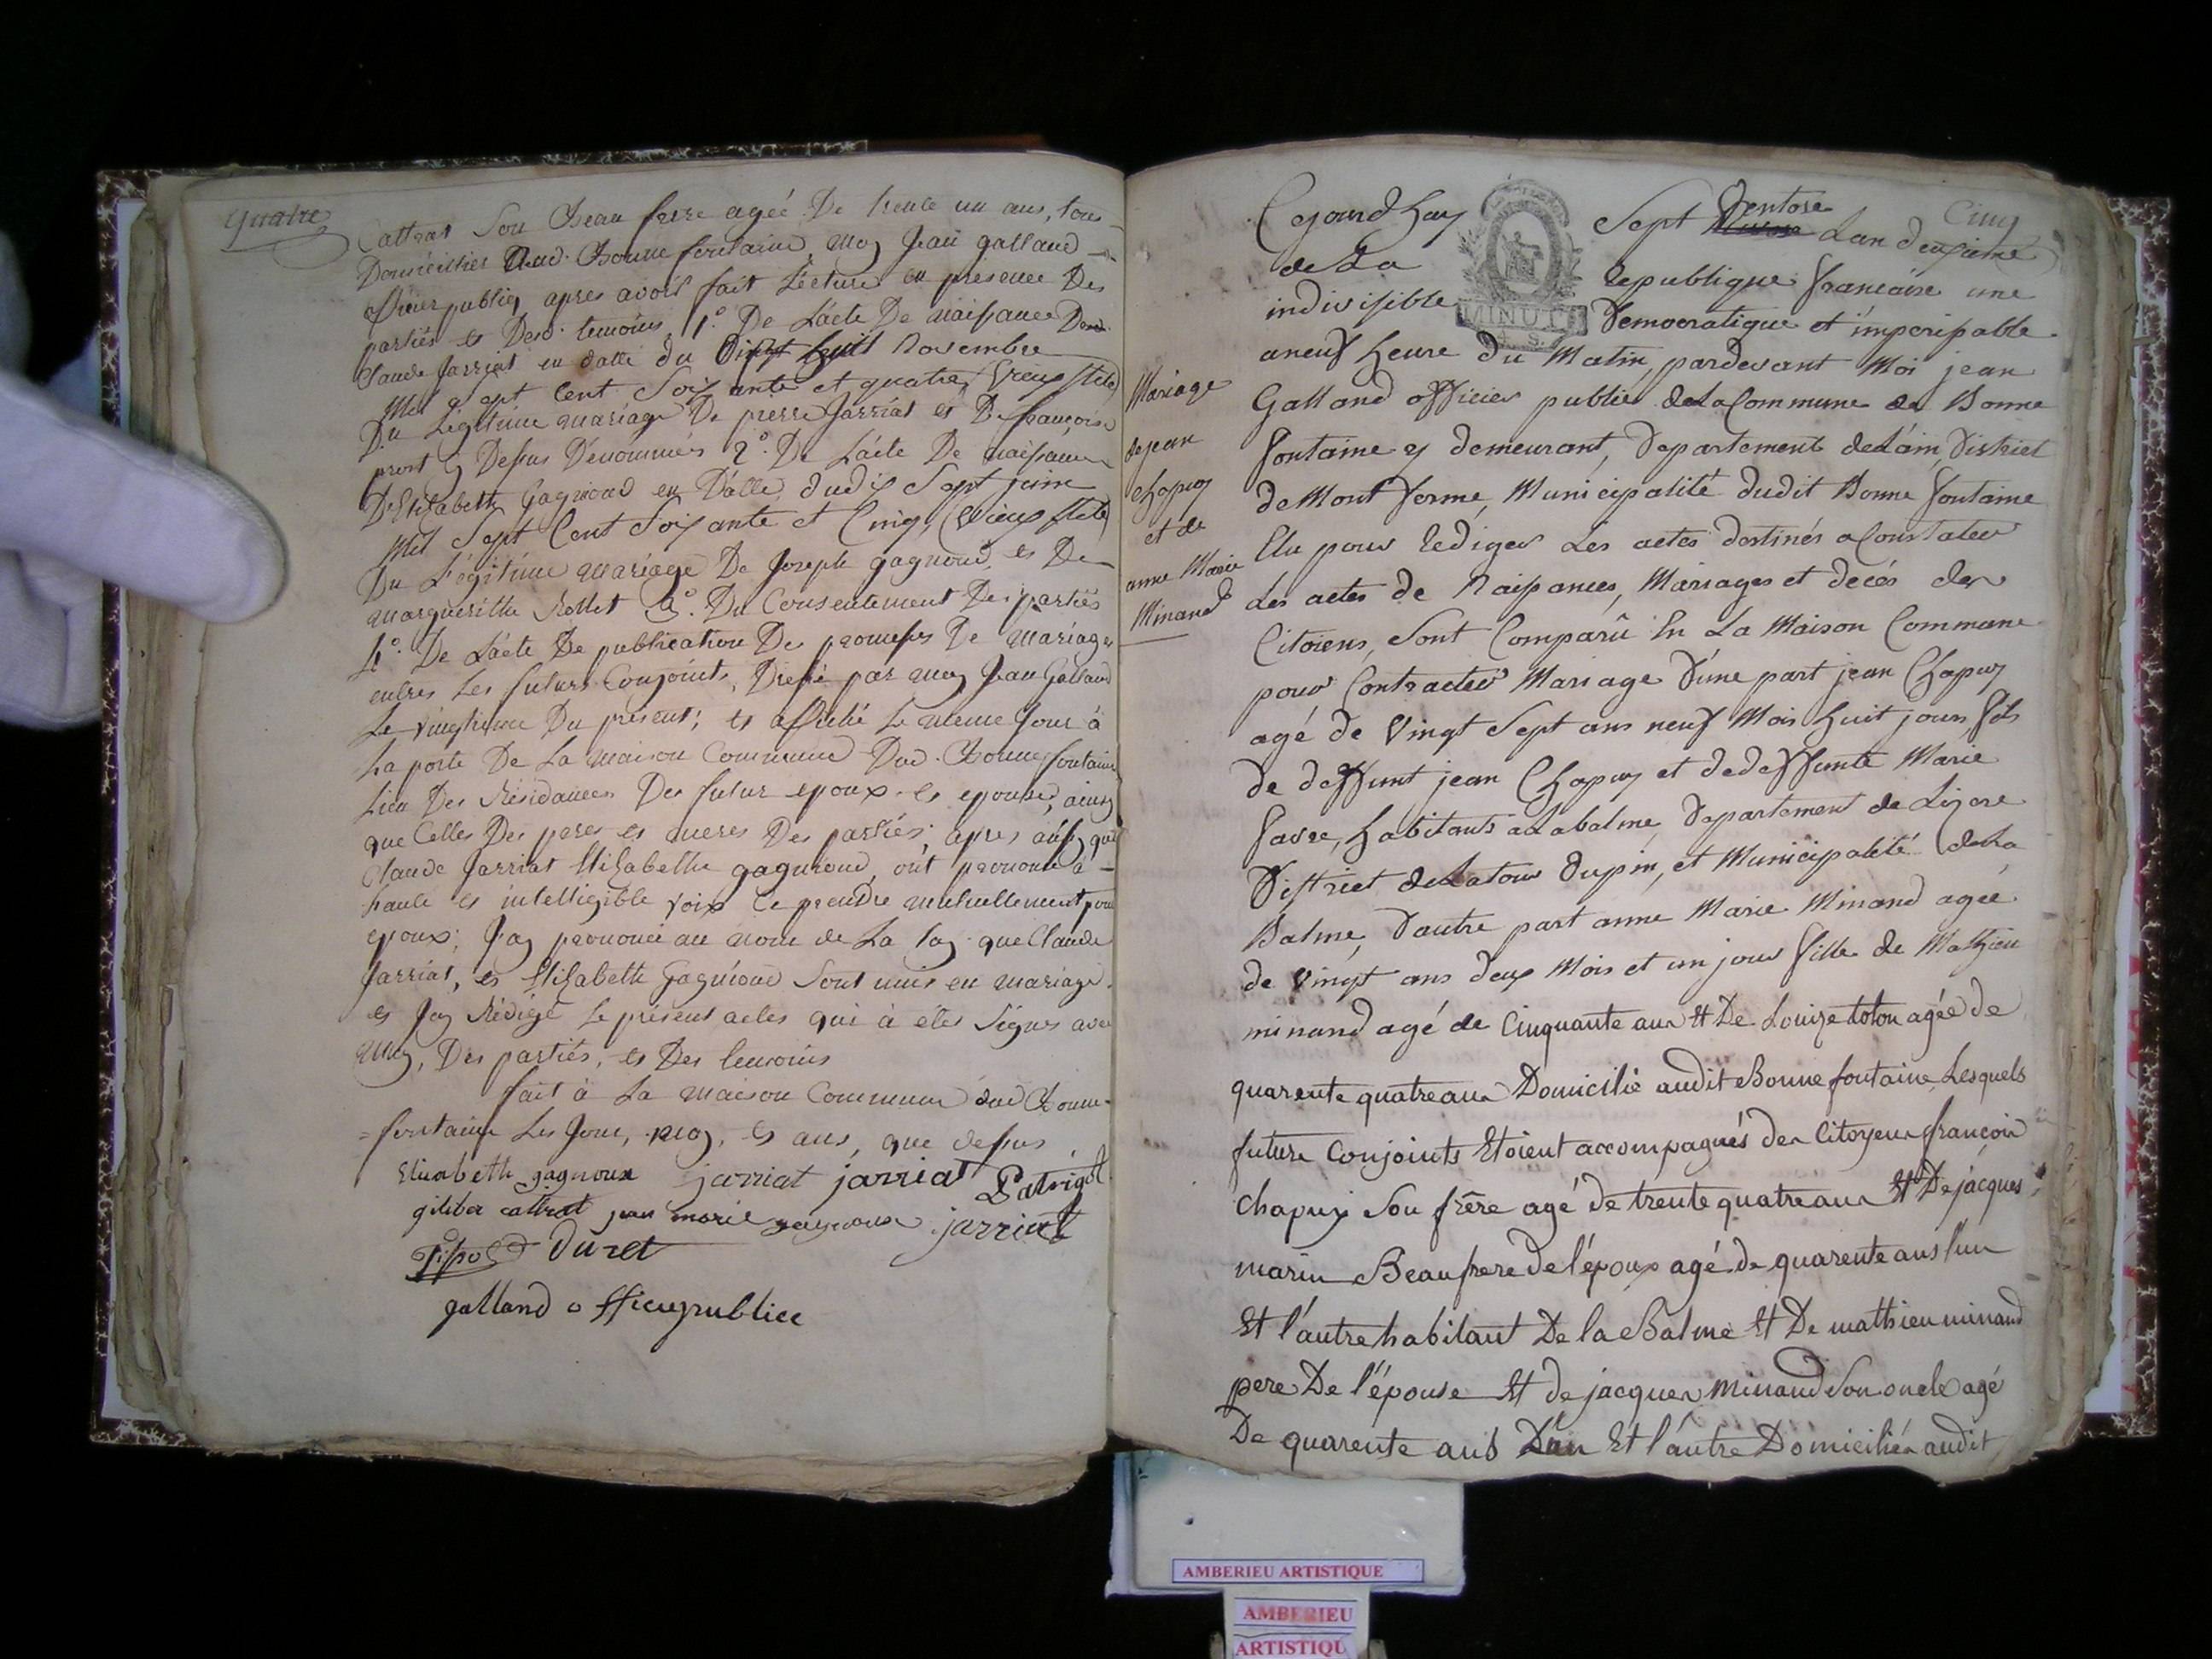 quatre
Cattrat Son Beau frere ageé De trente un ans, tous
Domicilies Aud. Bonne fontaine, moy Jean galland
officier public, apres avoir fait Lecture en presence Des
parties et Desd. temoins 1°. De L'acte De naissance Dud.
Claude Jarriat en datte du novembre
Mil Sept Cent Soixante et quatre (vieux stile)
Du Légitime mariage De pierre Jarriat et De françoise
prost cy Dessus Dénommés 2°. De L'acte De naissance
D'Elizabeth Gagnioud en Datte du dix Sept juin
Mil Sept Cent Soixante et Cinq, (vieux stile)
Du Légitime mariage De Joseph gagnioud et De
margueritte Rollet 3°. Du Consentement Des parties
4°. De L'acte De publication De promesses De mariage
entres Les futurs Conjoints, Dressé par moy Jean Galland
Le vingtieme Du présent; et affiché Le meme Jour à
La porte De La maison Commune Dud. Bonne fontaine
Lieu Des Résidances Des futur epoux et epouse, ainsy
que Celles Des peres et meres Des parties; apres aussy que
Claude Jarriat Elizabethe gagnioud, ont prononcé à
haute et intelligible voix Ce prendre mutuellement pour
epoux; J'ay prononcé au nom de La loy que Claude
Jarriat, et Elizabeth Gagnioud Sont unis en mariage
et J'ay Rédigé Le présent actes qui à étés Signés avec
moy, Des parties, et Des temoins
fait à La maison Commune dud Bonne-
=fontaine Les Jour, moy, et ans, que dessus
Elisabeth gagnoux jarriat jarriat Patrigot
giliber cattrat jean marie gagnoux jarriat
Duret
galland officier publicc
Cinq
Cejourdhuy Sept Ventose Lan deuxieme
de La Republique francaise une
indivisible Democratique et imperissable
MINUTE
aneuf heure du Matin, pardevant Moi jean
Galland officier public de La Commune de Bonne
fontaine y demeurant, Departement de L'ain, District
de Mont ferme, Municipalité dudit Bonne fontaine
Elu pour Rediger Les actes destinés a Constater
Les actes de Naissances, Mariages et decés des
Citoiens, Sont Comparû En La Maison Commune
pour Contracter Mariage d'une part jean Chapuy
agé de Vingt Sept ans neuf Mois huit jours fils
de deffunt jean Chapuy et de deffunte Marie
favre, habitants a Labalme, Departement de Lizere
District de Latour Dupin, et Municipalité de La
Balme, Dautre part anne Marie Minand agée
de vingt ans deux Mois et un jour fille de Mathieu
minand agé de Cinquante ans Et De Louize toton agée de
quarente quatre ans Domicilié audit Bonne fontaine Lesquels
future Conjoints Etoient accompagnés des Citoyens françois
Chapuy Son frêre agé de trente quatre ans Et De jacques
marin Beaufrere de l'époux agé de quarente ans l'un
Et l'autre habitant De la Balme Et De mathieu minand
pere De l'épouse Et de jacques minaud Son oncle agé
De quarente ans L'un Et l'autre Domiciliés audit
Mariage
de jean
Chapuy
et de
anne Marie
Minand
AMBERIEU ARTISTIQUE
AMBERIEU
ARTISTIQU